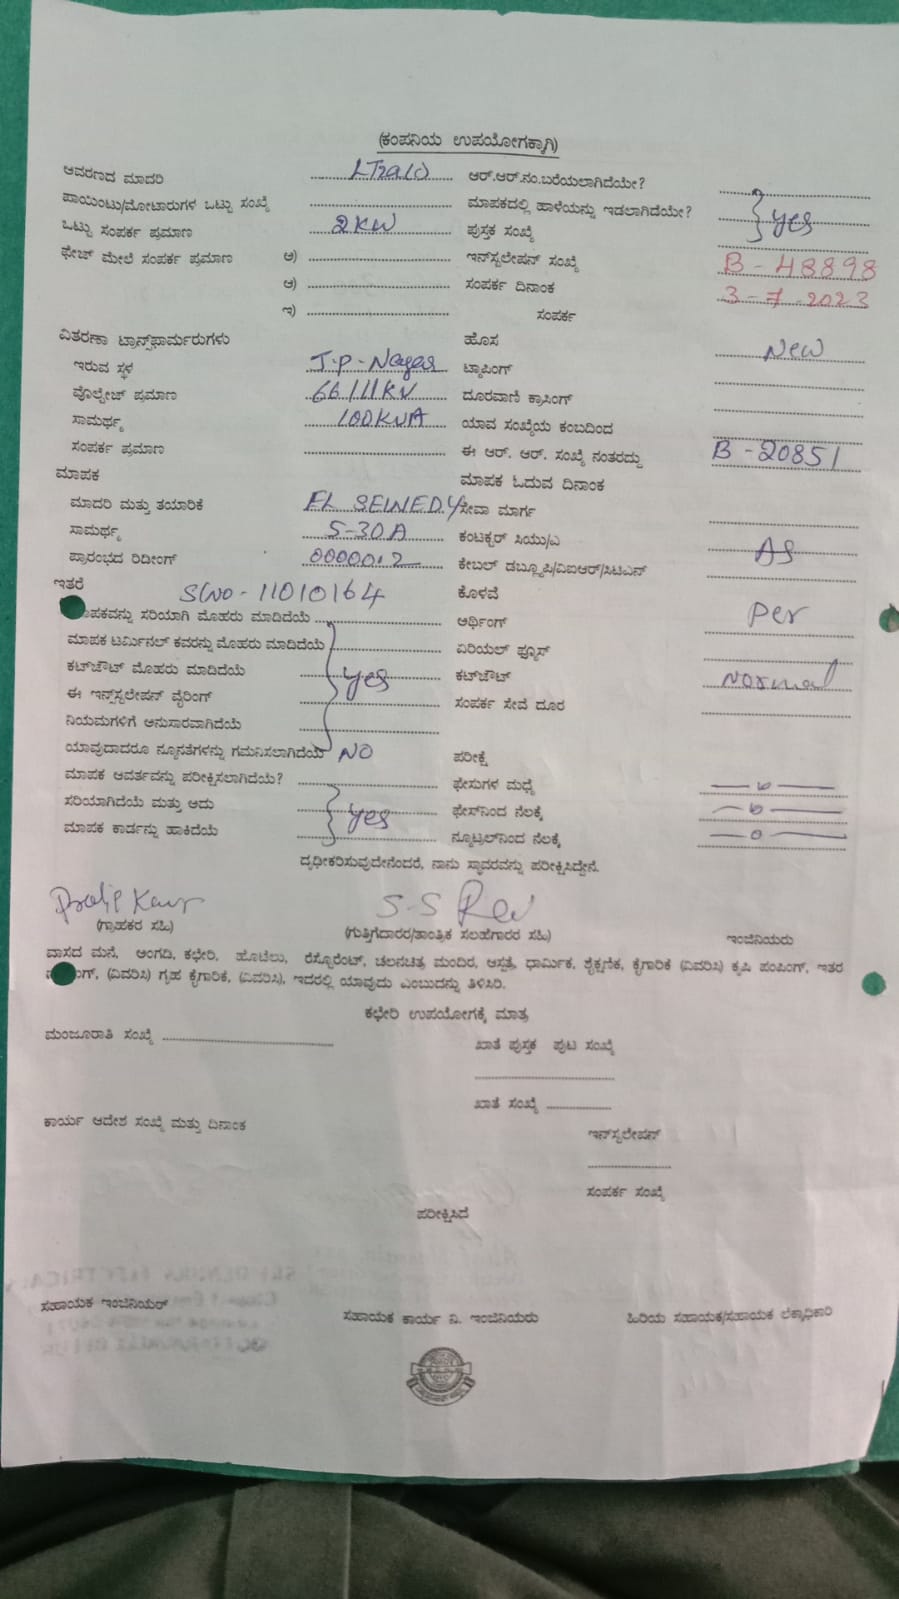 (ಕಂಪನಿಯ ಉಪಯೋಗಕ್ಕಾಗಿ)
ಆವರಣದ ಮಾದರಿ
ಆರ್.ಆರ್.ನಂ.ಬರೆಯಲಾಗಿದೆಯೇ?
ಪಾಯಿಂಟು/ಮೋಟಾರುಗಳ ಒಟ್ಟು ಸಂಖ್ಯೆ
ಮಾಪಕದಲ್ಲಿ ಹಾಳೆಯನ್ನು ಇಡಲಾಗಿದೆಯೇ? yes
ಒಟ್ಟು ಸಂಪರ್ಕ ಪ್ರಮಾಣ 2KW ಪುಸ್ತಕ ಸಂಖ್ಯೆ
ಫೇಜ್ ಮೇಲೆ ಸಂಪರ್ಕ ಪ್ರಮಾಣ ಅ) ಇನ್‌ಸ್ಟಲೇಷನ್ ಸಂಖ್ಯೆ B-48898
ಆ) ಸಂಪರ್ಕ ದಿನಾಂಕ 3-7-2023
ಇ) ಸಂಪರ್ಕ
ವಿತರಣಾ ಟ್ರಾನ್ಸ್‌ಫಾರ್ಮರುಗಳು ಹೊಸ New
ಇರುವ ಸ್ಥಳ J.P-Nagar ಟ್ಯಾಪಿಂಗ್
ವೊಲ್ಟೇಜ್ ಪ್ರಮಾಣ 66/11KV ದೂರವಾಣಿ ಕ್ರಾಸಿಂಗ್
ಸಾಮರ್ಥ್ಯ 100KVA ಯಾವ ಸಂಖ್ಯೆಯ ಕಂಬದಿಂದ
ಸಂಪರ್ಕ ಪ್ರಮಾಣ ಈ ಆರ್. ಆರ್. ಸಂಖ್ಯೆ ನಂತರದ್ದು B-20851
ಮಾಪಕ ಮಾಪಕ ಓದುವ ದಿನಾಂಕ
ಮಾದರಿ ಮತ್ತು ತಯಾರಿಕೆ ಸೇವಾ ಮಾರ್ಗ
ಸಾಮರ್ಥ್ಯ 5-30A ಕಂಟಕ್ಟರ್ ಸಿಯು/ಎ As
ಪ್ರಾರಂಭದ ರಿಡಿಂಗ್ 000001.2 ಕೇಬಲ್ ಡಬ್ಲ್ಯೂಪಿ/ವಿಐಆರ್/ಸಿಟಿಎನ್
ಇತರೆ SNO-11010164 ಕೊಳವೆ
ಸರಿಯಾಗಿ ಮೊಹರು ಮಾಡಿದೆಯೆ ಅರ್ಥಿಂಗ್ per
ಮಾಪಕ ಟರ್ಮಿನಲ್ ಕವರನ್ನು ಮೊಹರು ಮಾಡಿದೆಯೆ ಏರಿಯಲ್ ಫ್ಯೂಸ್
ಕಟ್‌ಔಟ್ ಮೊಹರು ಮಾಡಿದೆಯೆ yes ಕಟ್‌ಔಟ್ Normal
ಈ ಇನ್ಸ್‌ಸ್ಟಲೇಷನ್ ವೈರಿಂಗ್ ಸಂಪರ್ಕ ಸೇವೆ ದೂರ
ನಿಯಮಗಳಿಗೆ ಅನುಸಾರವಾಗಿದೆಯೆ
ಯಾವುದಾದರೂ ನ್ಯೂನತೆಗಳನ್ನು ಗಮನಿಸಲಾಗಿದೆಯೆ NO ಪರೀಕ್ಷೆ
ಮಾಪಕ ಆವರ್ತವನ್ನು ಪರೀಕ್ಷಿಸಲಾಗಿದೆಯೆ? ಫೇಸುಗಳ ಮಧ್ಯೆ
ಸರಿಯಾಗಿದೆಯೆ ಮತ್ತು ಅದು yes ಫೇಸ್‌ನಿಂದ ನೆಲಕ್ಕೆ
ಮಾಪಕ ಕಾರ್ಡನ್ನು ಹಾಕಿದೆಯೆ ನ್ಯೂಟ್ರಲ್‌ನಿಂದ ನೆಲಕ್ಕೆ
ದೃಢೀಕರಿಸುವುದೇನೆಂದರೆ, ನಾನು ಸ್ಥಾವರವನ್ನು ಪರೀಕ್ಷಿಸಿದ್ದೇನೆ.
(ಗ್ರಾಹಕರ ಸಹಿ) (ಗುತ್ತಿಗೆದಾರರ/ತಾಂತ್ರಿಕ ಸಲಹೆಗಾರರ ಸಹಿ) ಇಂಜಿನಿಯರು
ವಾಸದ ಮನೆ, ಅಂಗಡಿ, ಕಛೇರಿ, ಹೊಟೆಲು, ರೆಸ್ಟೊರೆಂಟ್, ಚಲನಚಿತ್ರ ಮಂದಿರ, ಆಸ್ಪತ್ರೆ, ಧಾರ್ಮಿಕ, ಶೈಕ್ಷಣಿಕ, ಕೈಗಾರಿಕೆ (ವಿವರಿಸಿ) ಕೃಷಿ ಪಂಪಿಂಗ್, ಇತರ
(ವಿವರಿಸಿ) ಗೃಹ ಕೈಗಾರಿಕೆ, (ವಿವರಿಸಿ), ಇದರಲ್ಲಿ ಯಾವುದು ಎಂಬುದನ್ನು ತಿಳಿಸಿರಿ.
ಕಛೇರಿ ಉಪಯೋಗಕ್ಕೆ ಮಾತ್ರ
ಮಂಜೂರಾತಿ ಸಂಖ್ಯೆ ಖಾತೆ ಪುಸ್ತಕ ಪುಟ ಸಂಖ್ಯೆ
ಖಾತೆ ಸಂಖ್ಯೆ
ಕಾರ್ಯ ಆದೇಶ ಸಂಖ್ಯೆ ಮತ್ತು ದಿನಾಂಕ
ಇನ್‌ಸ್ಟಲೇಷನ್
ಸಂಪರ್ಕ ಸಂಖ್ಯೆ
ಪರೀಕ್ಷಿಸಿದೆ
ಸಹಾಯಕ ಇಂಜಿನಿಯರ್ ಸಹಾಯಕ ಕಾರ್ಯ ನಿ. ಇಂಜಿನಿಯರು ಹಿರಿಯ ಸಹಾಯಕ/ಸಹಾಯಕ ಲೆಕ್ಕಾಧಿಕಾರಿ